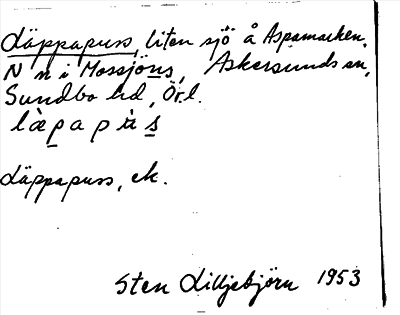 Läppapuss, liten sjö å Aspamarken.
N n i Mossjöns, Askersunds sn,
Sundbo hd, Ör.l.
lȁpapùs
Läppapuss, ek.
Sten Lilljebjörn 1953